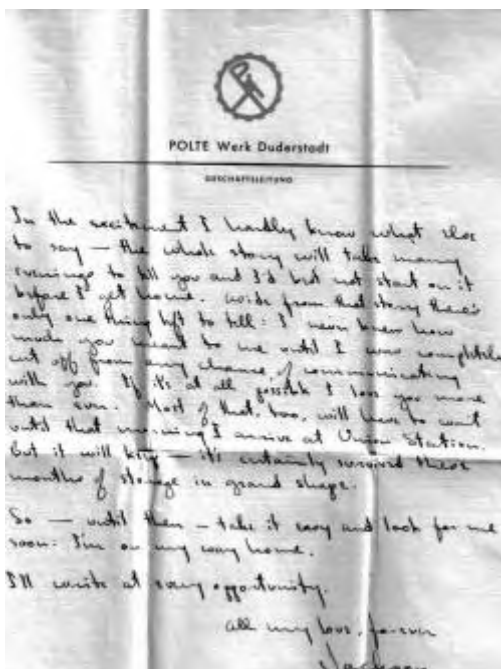 POLTE Werk Duderstadt
GESCHÄFTSLEITUNG
In the excitement I hardly know what else
to say — the whole story will take many
evenings to tell you and I'd best not start on it
before I get home. Aside from that story there's
only one thing left to tell: I never knew how
much you meant to me until I was completely
cut off from any chance of communicating
with you. If it's at all possible I love you more
than ever. Most of that, too, will have to wait
until that morning I arrive at Union Station.
But it will keep — it's certainly survived these
months of storage in grand shape.
So — until then — take it easy and look for me
soon: I'm on my way home.
I'll write at every opportunity.
All my love, forever